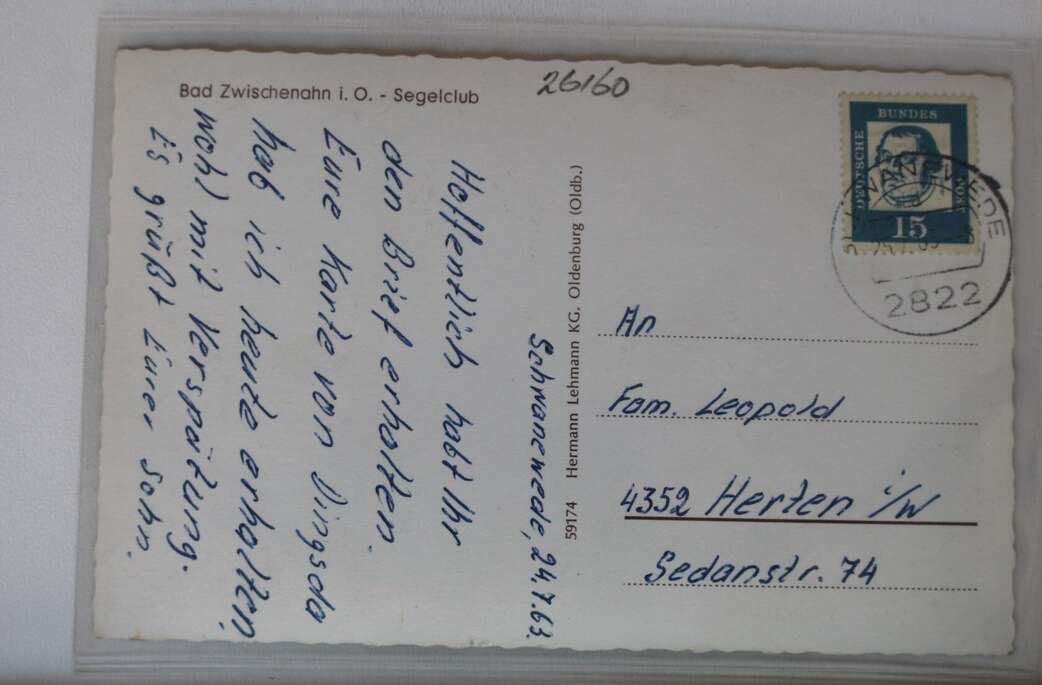 Bad Zwischenahn i. O. - Segelclub
26160
Schwanewede, 24.7.63.
Hoffentlich habt Ihr
den Brief erhalten.
Eure Karte von Dingsda
hab ich heute erhalten,
wohl mit Verspätung.
Es grüßt Euer Sohn.
59174 Hermann Lehmann KG. Oldenburg (Oldb.)
DEUTSCHE
BUNDES
POST
15
2822
An
Fam. Leopold
4352 Herten i/W
Sedanstr. 74